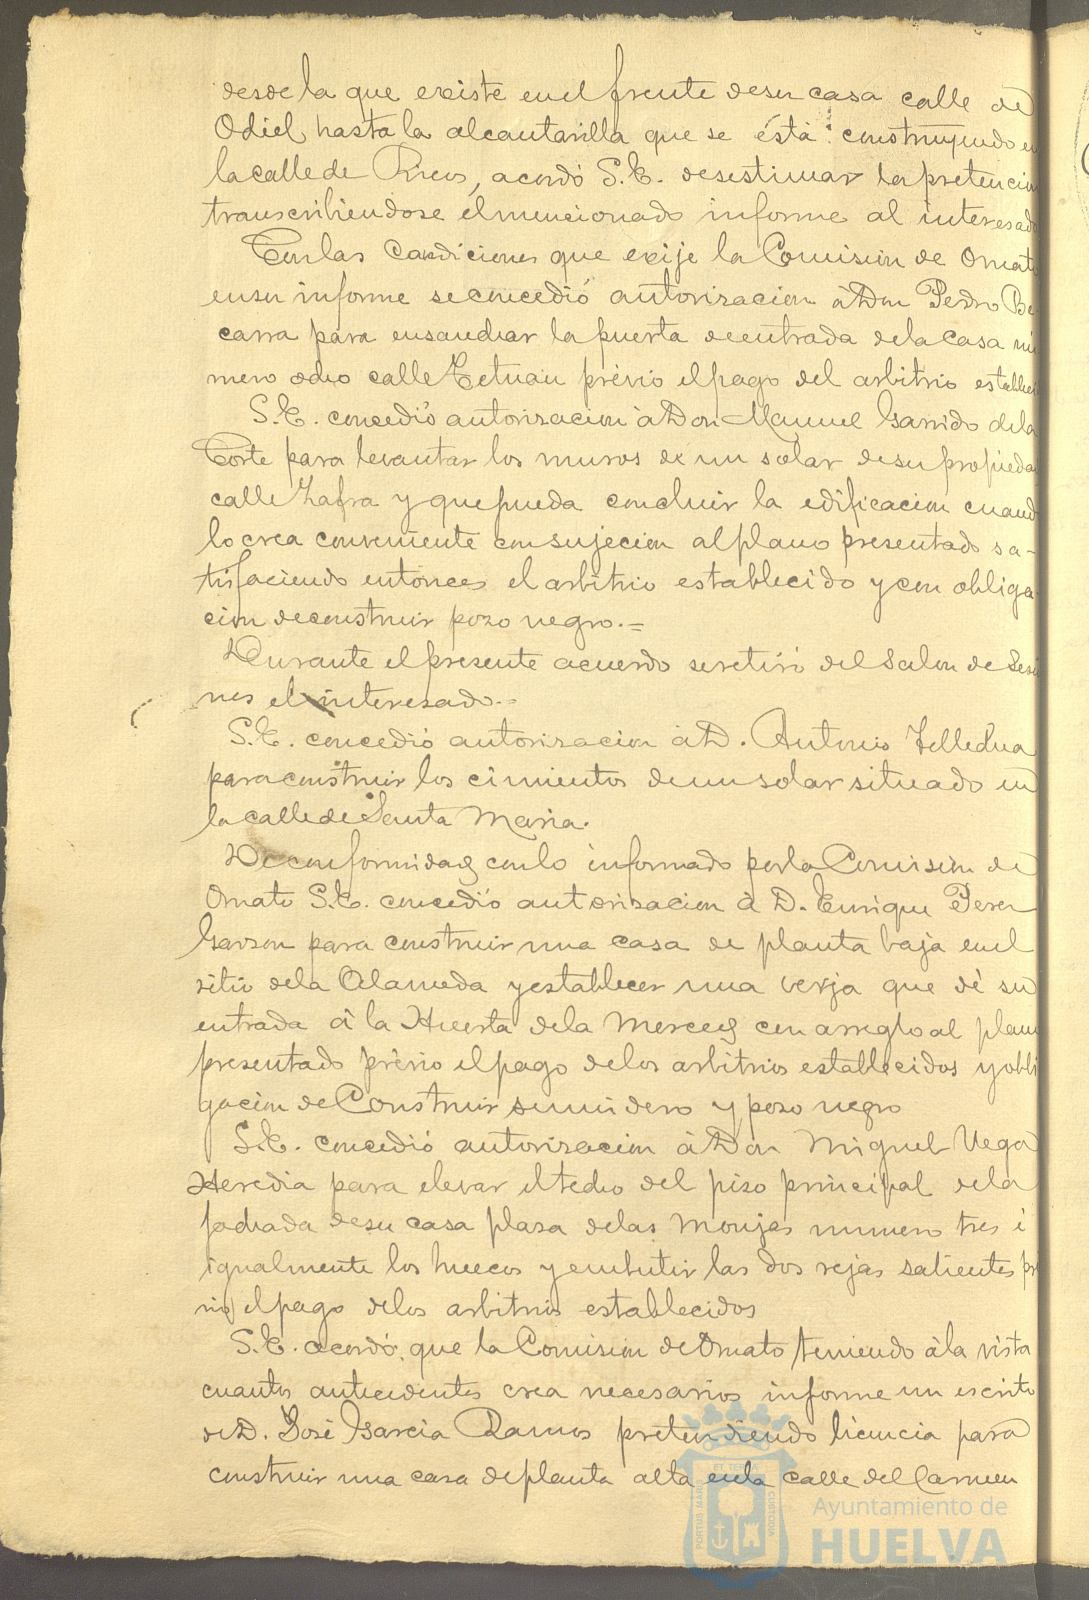 desde la que existe en el frente de su casa calle de
Odiel hasta la alcantarilla que se está construyendo en
la calle de Ricos, acordó S.E. desestimar la pretencion
transcribiendose el mencionado informe al interesado
Con las Condiciones que exije la Comision de Ornato
en su informe se concedió autorizacion á Don Pedro Be-
carra para ensanchar la puerta de entrada de la casa nu
mero ocho calle Tetuan prévio el pago del arbitrio estableci
S.E. concedió autorizacion á Don Manuel Garrido de la
Corte para levantar los muros de un solar de su propieda
calle Zafra y que pueda concluir la edificacion cuand
lo crea conveniente con sujecion al plano presentado sa-
tisfaciendo entonces el arbitrio establecido y con obliga
cion de construir pozo negro.=
Durante el presente acuerdo se retiró del Salon de Sesi
nes el interesado.=
S.E. concedió autorizacion á D. Antonio
para construir los cimientos de un solar situado en
la calle de Santa Maria.
De conformidad con lo informado por la Comision de
Ornato S.E. concedió autorizacion á D. Enrique Perez
Garzon para construir una casa de planta baja en el
sitio de la Alameda y establecer una verja que dé su
entrada á la Huerta de la Merced con arreglo al plano
presentado prévio el pago de los arbitrios establecidos y obli
gacion de Construir sumidero y pozo negro
S.E. concedió autorizacion á Don Miguel Vega
Heredia para elevar el techo del piso principal de la
fachada de su casa plaza de las Monjas numero tres é
igualmente los huecos y embutir las dos rejas salientes pré
vio el pago de los arbitrios establecidos
S.E. acordó, que la Comision de Ornato teniendo á la vista
cuantos antecedentes crea necesarios informe un escrito
de D. José Garcia Ramos pretendiendo licencia para
construir una casa de planta alta en la calle del Carmen
PORTUS MARIS ET TERRAE CUSTODIA
Ayuntamiento de
HUELVA